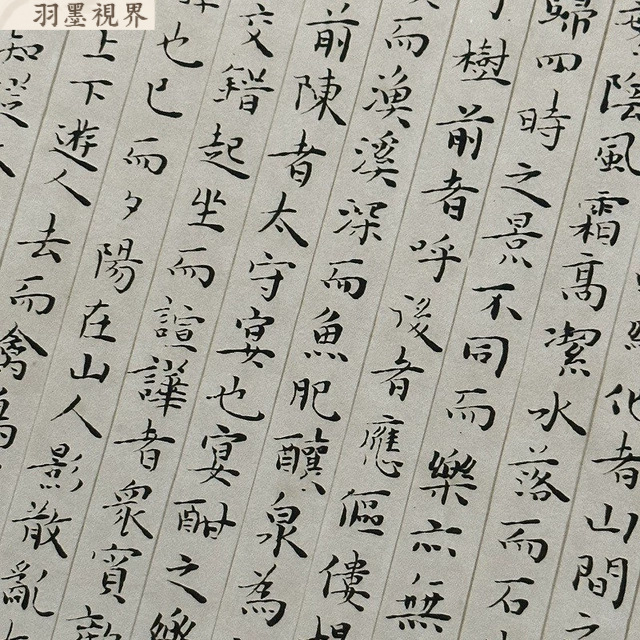 羽墨視界
化者山間之
陰風霜高潔水落而石
歸四時之景不同而樂亦無
樹前者呼後者應傴僂
而漁溪深而魚肥釀泉為
前陳者太守宴也宴酣之樂
交錯起坐而諠譁者眾賓歡
也已而夕陽在山人影散亂
上下遊人去而禽鳥
知從